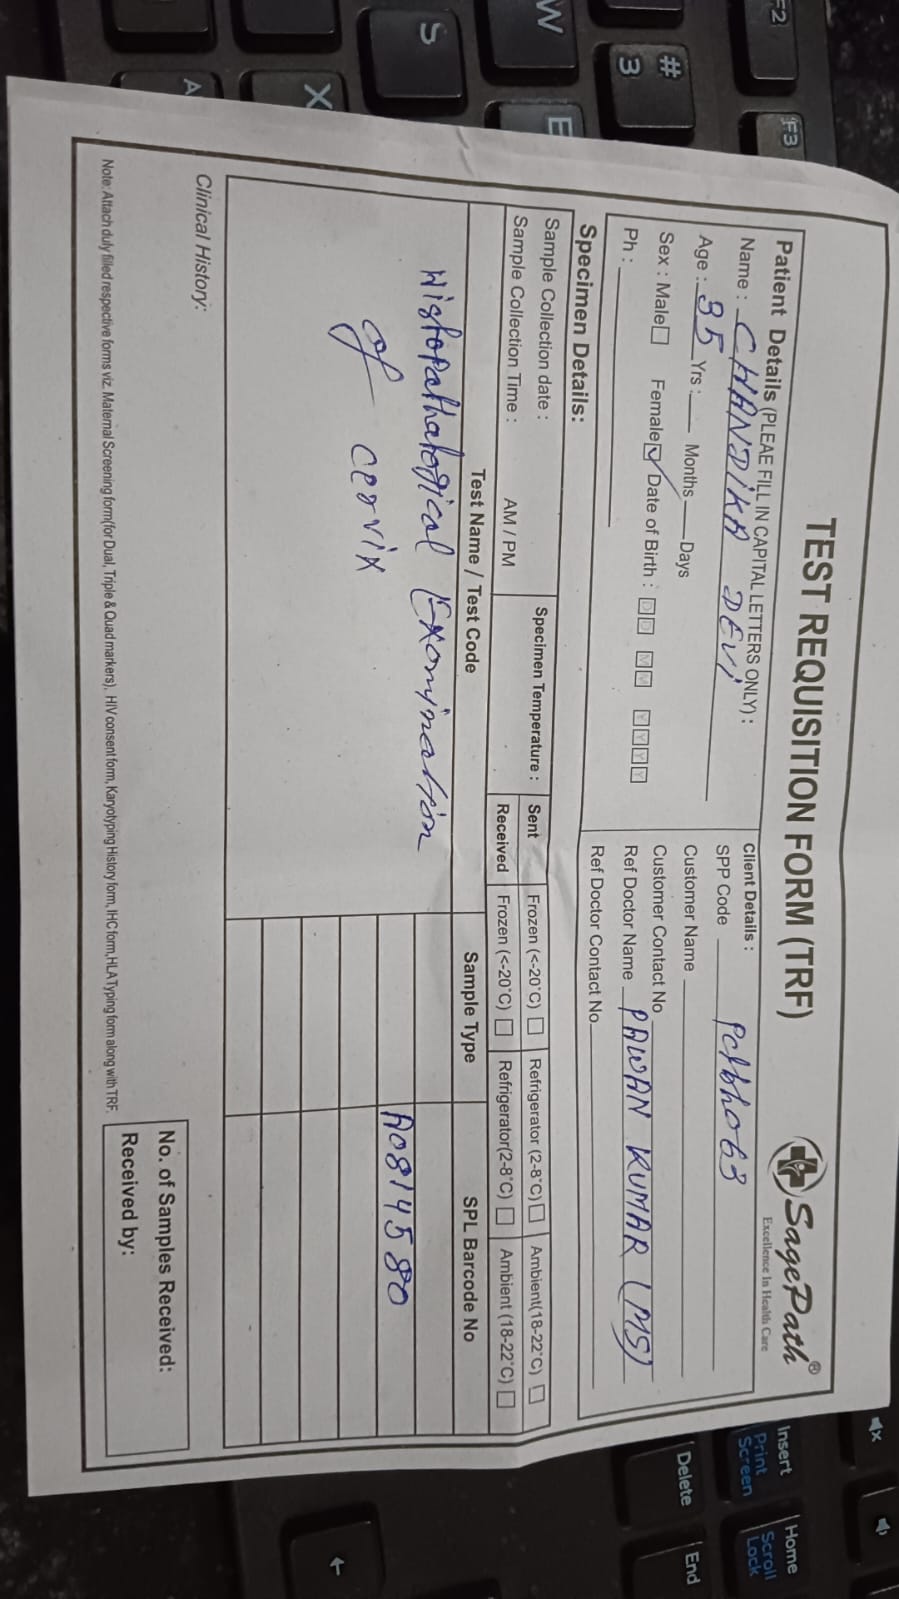 TEST REQUISITION FORM (TRF)
SagePath®
Excellence In Health Care
Patient Details (PLEAE FILL IN CAPITAL LETTERS ONLY) :
Name : CHANDIKA DEVI
Age : 35 Yrs : Months Days
Sex : Male Female Date of Birth : DD MM YYYY
Ph :
Client Details :
SPP Code
Customer Name
Customer Contact No
Ref Doctor Name PAWAN KUMAR (MS)
Ref Doctor Contact No
Specimen Details:
Sample Collection date :
Sample Collection Time : AM / PM
Specimen Temperature :
Sent Frozen (<-20°C) Refrigerator (2-8°C) Ambient(18-22°C)
Received Frozen (<-20°C) Refrigerator(2-8°C) Ambient (18-22°C)
Test Name / Test Code Sample Type SPL Barcode No
Histopathalogical Examination
of cervix
A0814580
Clinical History:
No. of Samples Received:
Received by:
Note: Attach duly filled respective forms viz. Maternal Screening form(for Dual, Triple & Quad markers). HIV consent form, Karyotyping History form, IHC form,HLA Typing form along with TRF.
#
3
W
E
S
X
A
F2
F3
Insert
Print
Screen
Home
Scroll
Lock
Delete
End